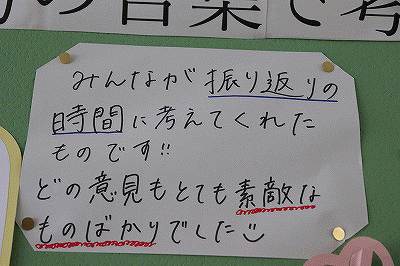 の言葉で考
みんなが振り返りの
時間に考えてくれた
ものです!!
どの意見もとても素敵な
ものばかりでした